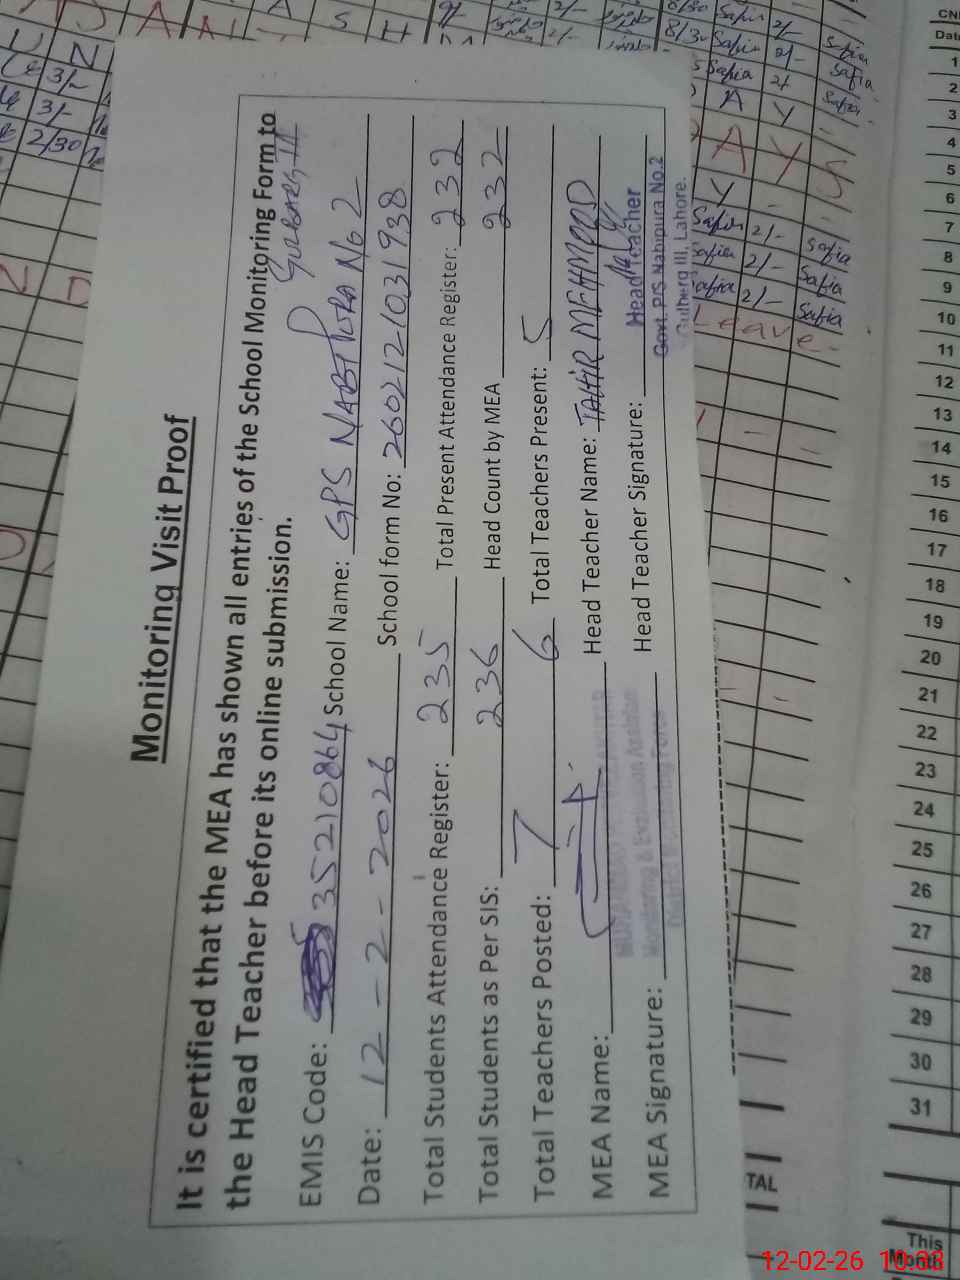 Monitoring Visit Proof
It is certified that the MEA has shown all entries of the School Monitoring Form to
the Head Teacher before its online submission.
EMIS Code: 35210864 School Name: GPS NABI PURA No 2 GULBARG-III
Date: 12-2-2026 School form No: 2602121031938
Total Students Attendance Register: 235 Total Present Attendance Register: 232
Total Students as Per SIS: 236 Head Count by MEA 232
Total Teachers Posted: 7 6 Total Teachers Present: 5
MEA Name: Head Teacher Name: TAHIR MEHMOOD
MEA Signature: Head Teacher Signature:
Monitoring & Evaluation Assistant
District Monitoring Force
Head Teacher
Govt. P/S Nabipura No.2
Gulberg III, Lahore.
U N
3/-
3/-
2/30
A S H
8/30 Safia 2/- Safia
8/30 Safia 2/- Safia
Safia 2/- Safia
A Y
D A Y S
Y
Safia 2/- Safia
Safia 2/- Safia
Safia 2/- Safia
Leave
N D
CNI
Date
1
2
3
4
5
6
7
8
9
10
11
12
13
14
15
16
17
18
19
20
21
22
23
24
25
26
27
28
29
30
31
TAL
This
Month
12-02-26 10:33